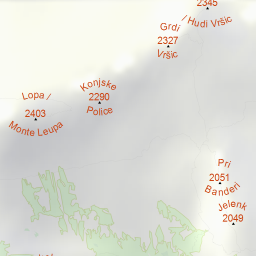 2345
/ Hudi Vršic
Grdi
2327
Vršic
Konjske
2290
Police
Lopa /
2403
Monte Leupa
Pri
2051
Banderi
Jelenk
2049